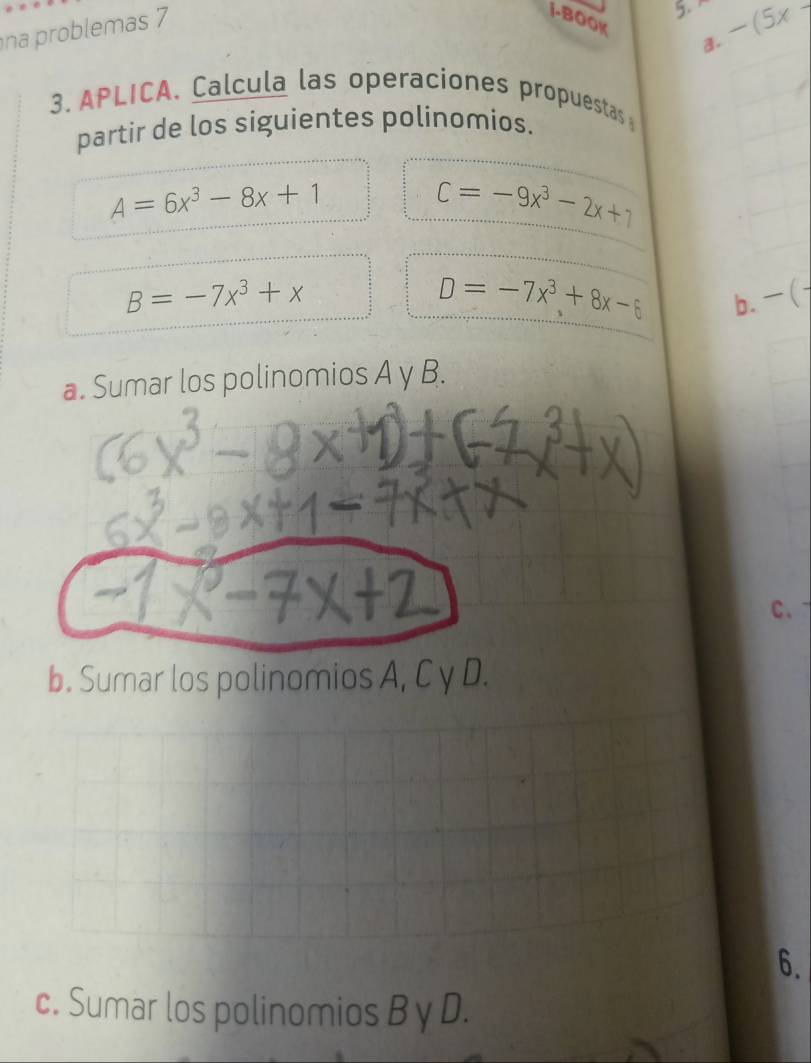 na problemas 7
i-BOOK
5.
a. -(5x
3. APLICA. Calcula las operaciones propuestas a
partir de los siguientes polinomios.
A = 6x³ - 8x + 1
C = -9x³ - 2x + 7
B = -7x³ + x
D = -7x³ + 8x - 6
b. -(-
a. Sumar los polinomios A y B.
(6x³ - 8x + 1) + (-7x³ + x)
6x³ - 8x + 1 - 7x³ + x
-1x³ - 7x + 2
c. -
b. Sumar los polinomios A, C y D.
6.
c. Sumar los polinomios B y D.